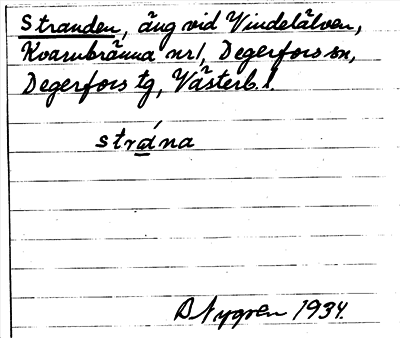 Stranden, äng vid Vindelälven,
Kvarnbränna nr 1, Degerfors sn,
Degerfors tg, Västerb. l.
strána
D Nygren 1934.